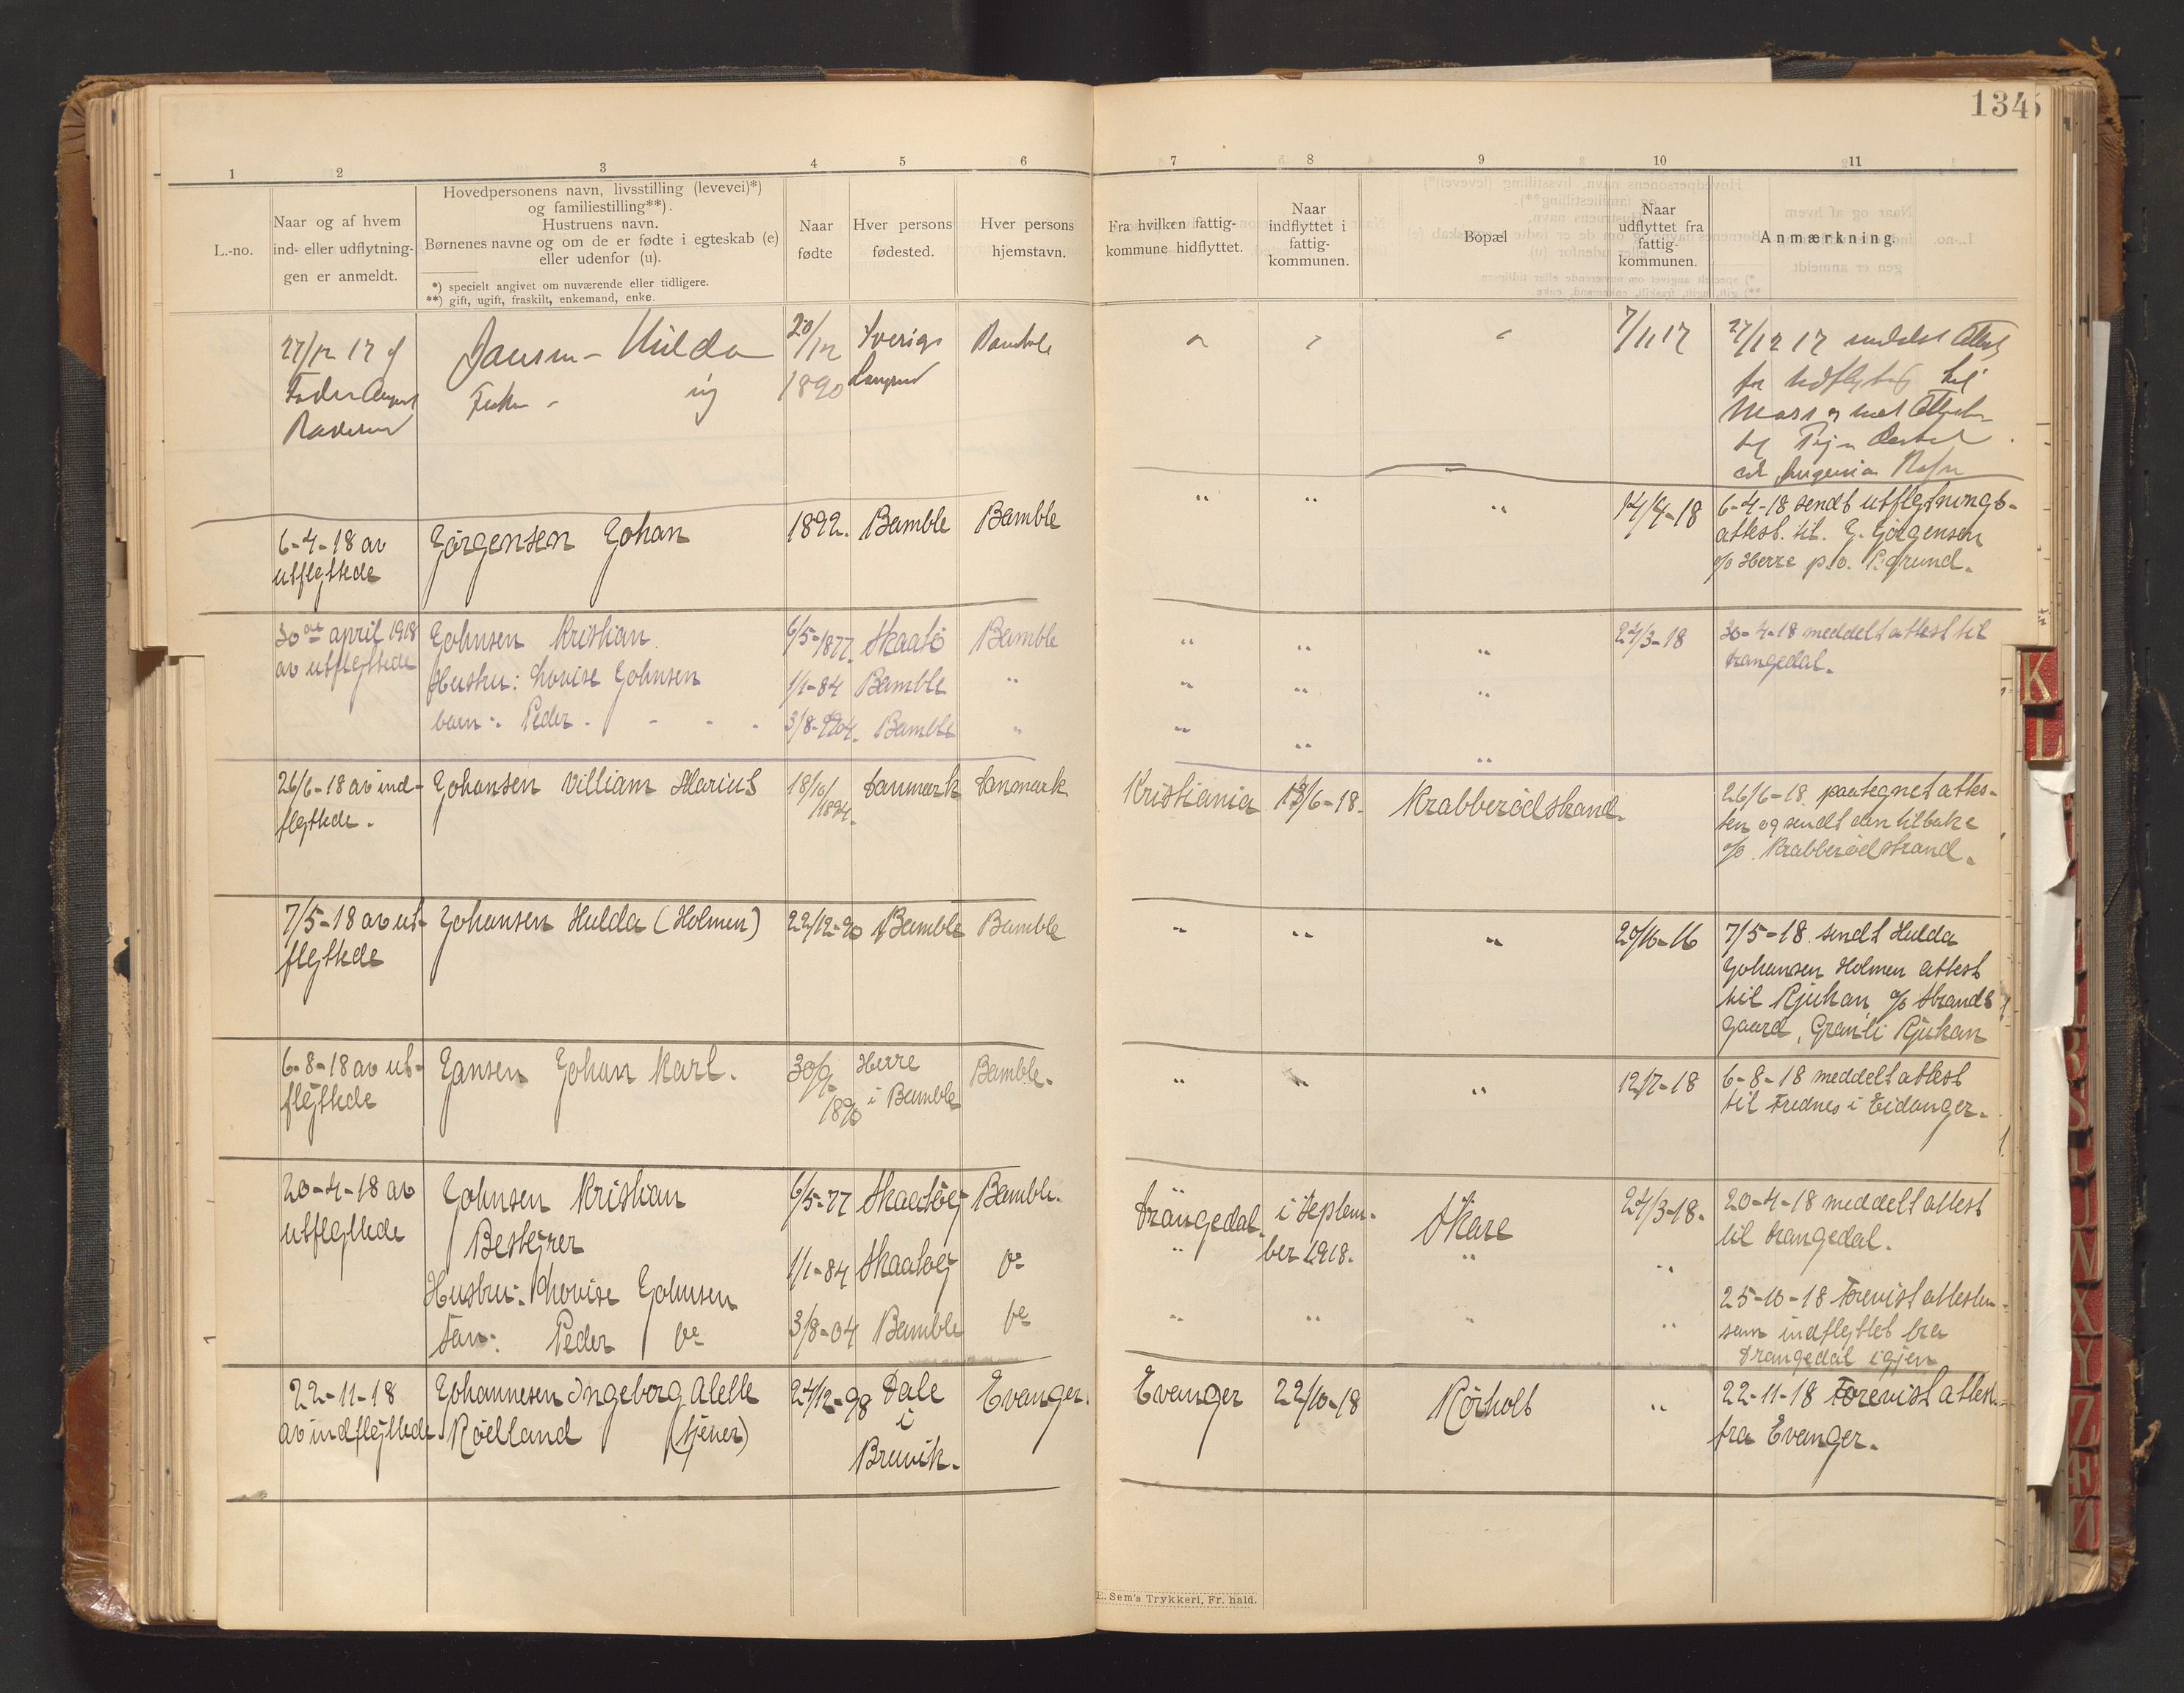 134
1 2 3 4 5 6 7 8 9 10 11
L.-no.
Naar og af hvem
ind- eller udflytnin-
gen er anmeldt.
Hovedpersonens navn, livsstilling (levevei)*)
og familiestilling**).
Hustruens navn.
Børnenes navne og om de er fødte i egteskab (e)
eller udenfor (u).
*) specielt angivet om nuværende eller tidligere.
**) gift, ugift, fraskilt, enkemand, enke.
Naar
fødte
Hver persons
fødested.
Hver persons
hjemstavn.
Fra hvilken fattig-
kommune hidflyttet.
Naar
indflyttet i
fattig-
kommunen.
Bopæl
Naar
udflyttet fra
fattig-
kommunen.
Anmærkning.
27/12 17 af
Jansen - Hilda
ug
20/12
1890
Sverige
Bamble
7/11 17
27/12 17 meddelt Attest
for Udflyttet til
Moss
6-4-18 av
utflyttede
Jörgensen Johan
1892.
Bamble
Bamble
"
"
"
14/4-18
6-4-18 sendt utflytnings-
attest til. J. Jörgensen
c/o Herre p.o. P.grund.
30 april 1918
av utflyttede
Johnsen Kristian.
Hustru: Lovise Johnsen
barn: Peder - - - -
6/5-1877.
1/1-84
3/8-1904.
Skaatö
Bamble
Bamble
Bamble
"
"
"
"
"
"
"
"
"
"
"
24/3-18
30-4-18 meddelt attest til
Drangedal.
26/6-18 av ind-
flyttede.
Johansen Villiam Marius
18/10/
1894.
Danmark
Danmark
Kristiania
13/6-18.
Krabberödstrand.
26/6-18. paategnet attes-
ten og sendt den tilbake
c/o. Krabberödstrand.
7/5-18 av ut-
flyttede
Johansen Hulda (Holmen)
22/12-90
Bamble
Bamble
"
"
"
20/6-16
7/5-18. sendt Hulda
Johansen Holmen attest
til Rjukan, c/o Strands
gaard, Granli Rjukan
6-8-18 av ut-
flyttede
Jansen Johan Karl.
Herre
i Bamble
Bamble.
"
"
"
12/7-18
6-8-18 meddelt attest
til Frednes i Eidanger.
20-4-18 av
utflyttede
Johnsen Kristian
Bestyrer
Hustru: Lovise Johnsen
Sön: Peder
6/5-77
1/1-84
3/8-04
Skaatöy
Skaatöy
Bamble
Bamble.
Drangedal.
"
"
i Septem-
ber 1918.
"
Skare
"
"
24/3-18.
"
"
20-4-18 meddelt attest
til Drangedal.
25-10-18 Forevist attesten
som indflyttet fra
Drangedal igjen
22-11-18
av indflyttede
Johannesen Ingeborg Alette
Röelland (tjener)
24/12-98
Dale
i
Bruvik.
Evanger.
Evanger
22/10-18
Rörholt
"
22-11-18 Forevist attest
fra Evanger.
E. Sem's Trykkeri, Fr. hald.
K
L
R
S
U
X
Y
Z
Æ
Ø